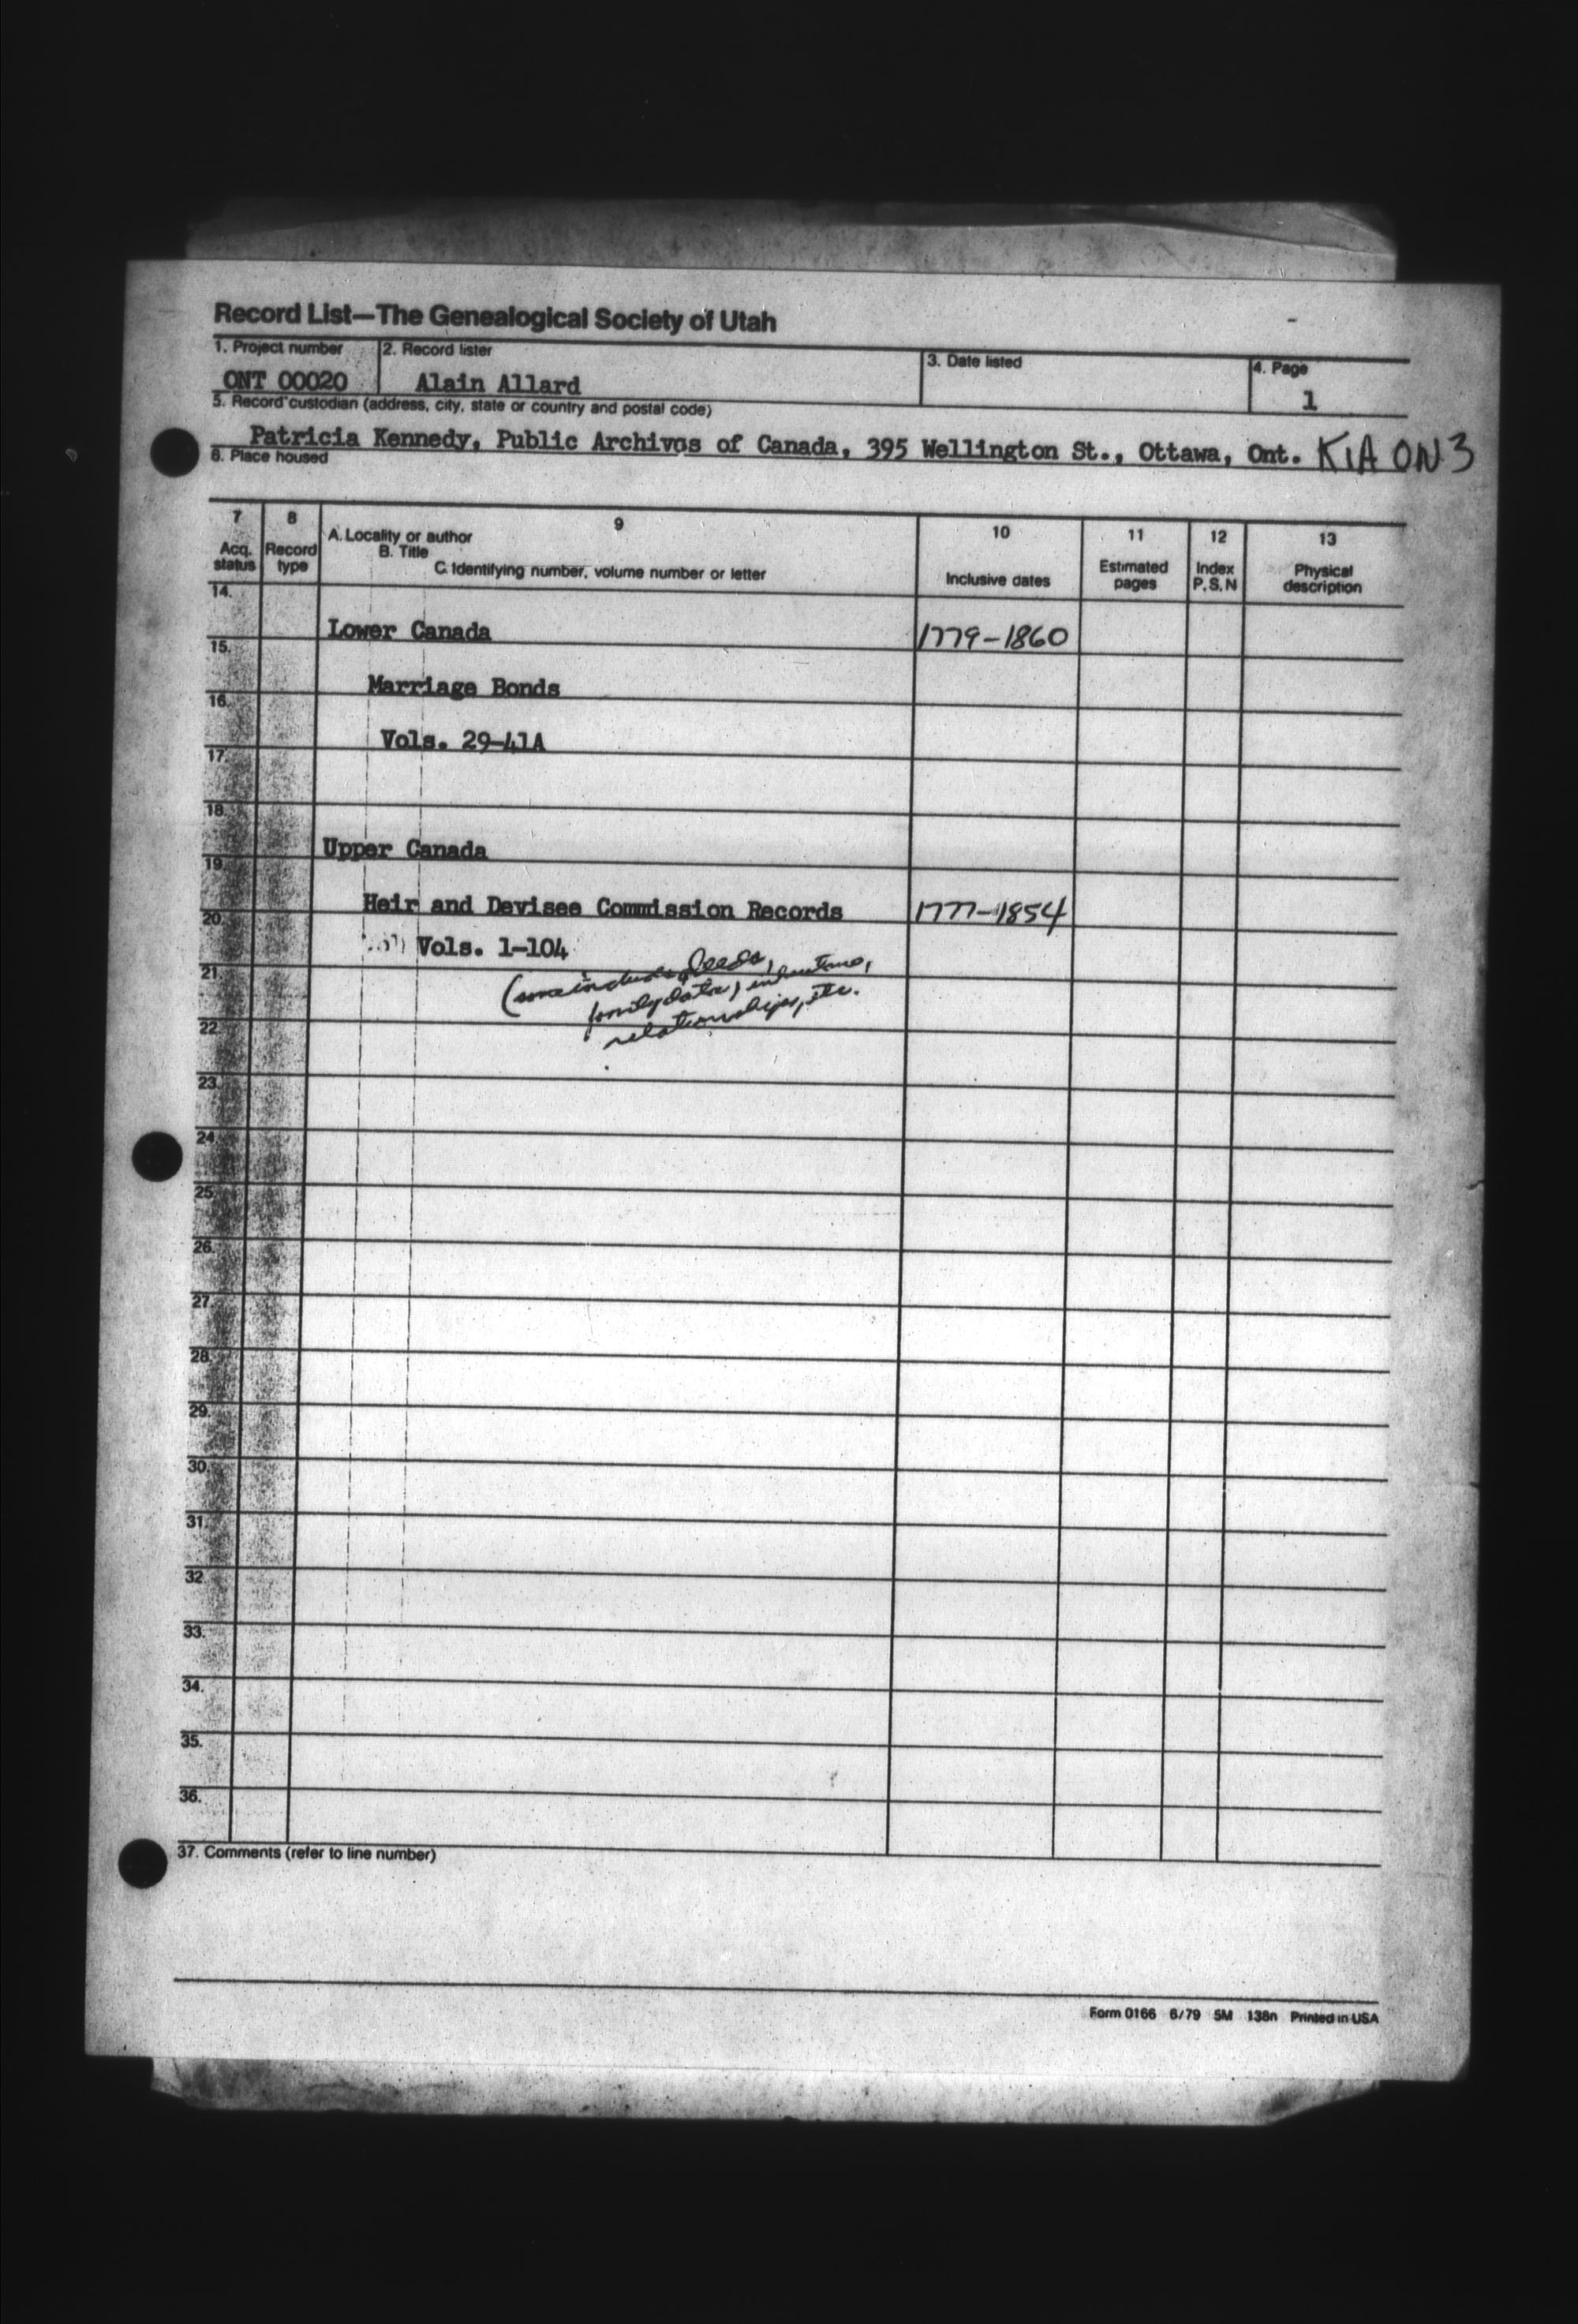 Record List—The Genealogical Society of Utah
1. Project number
2. Record lister
3. Date listed
4. Page
ONT 00020
Alain Allard
1
5. Record custodian (address, city, state or country and postal code)
Patricia Kennedy, Public Archives of Canada, 395 Wellington St., Ottawa, Ont. K1A 0N3
6. Place housed
7 8 9 10 11 12 13
Acq. status
Record type
A. Locality or author
B. Title
C. Identifying number, volume number or letter
Inclusive dates
Estimated pages
Index P, S, N
Physical description
14.
Lower Canada 1779-1860
15.
Marriage Bonds
16.
Vols. 29-41A
17.
18.
Upper Canada
19.
Heir and Devisee Commission Records 1777-1854
20.
Vols. 1-104
21.
(some include deeds,
family data, indentures,
relationships, etc.
22.
23.
24.
25.
26.
27.
28.
29.
30.
31.
32.
33.
34.
35.
36.
37. Comments (refer to line number)
Form 0166 6/79 5M 138n Printed in USA